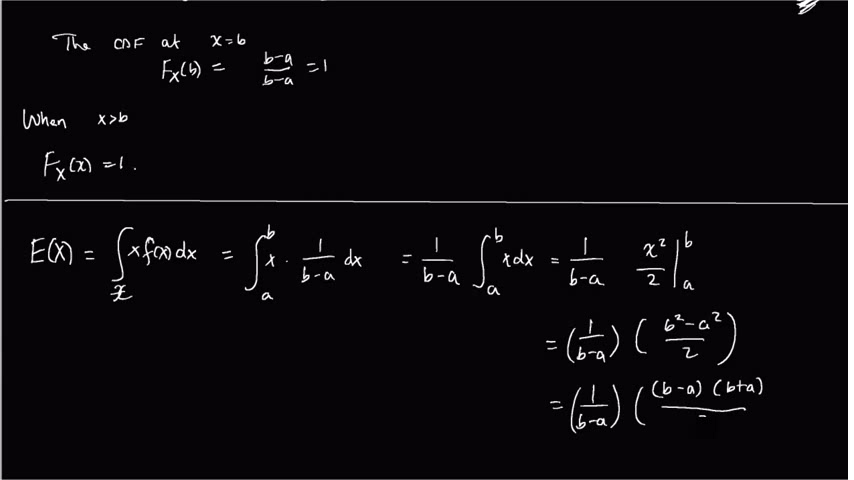 The CDF at x=b
F_X(b) = \frac{b-a}{b-a} = 1
When x>b
F_X(x) = 1.
E(X) = \int_{\mathcal{X}} x f(x) dx = \int_a^b x \cdot \frac{1}{b-a} dx = \frac{1}{b-a} \int_a^b x dx = \frac{1}{b-a} \frac{x^2}{2} |_a^b
= (\frac{1}{b-a}) (\frac{b^2-a^2}{2})
= (\frac{1}{b-a}) (\frac{(b-a)(b+a)}{